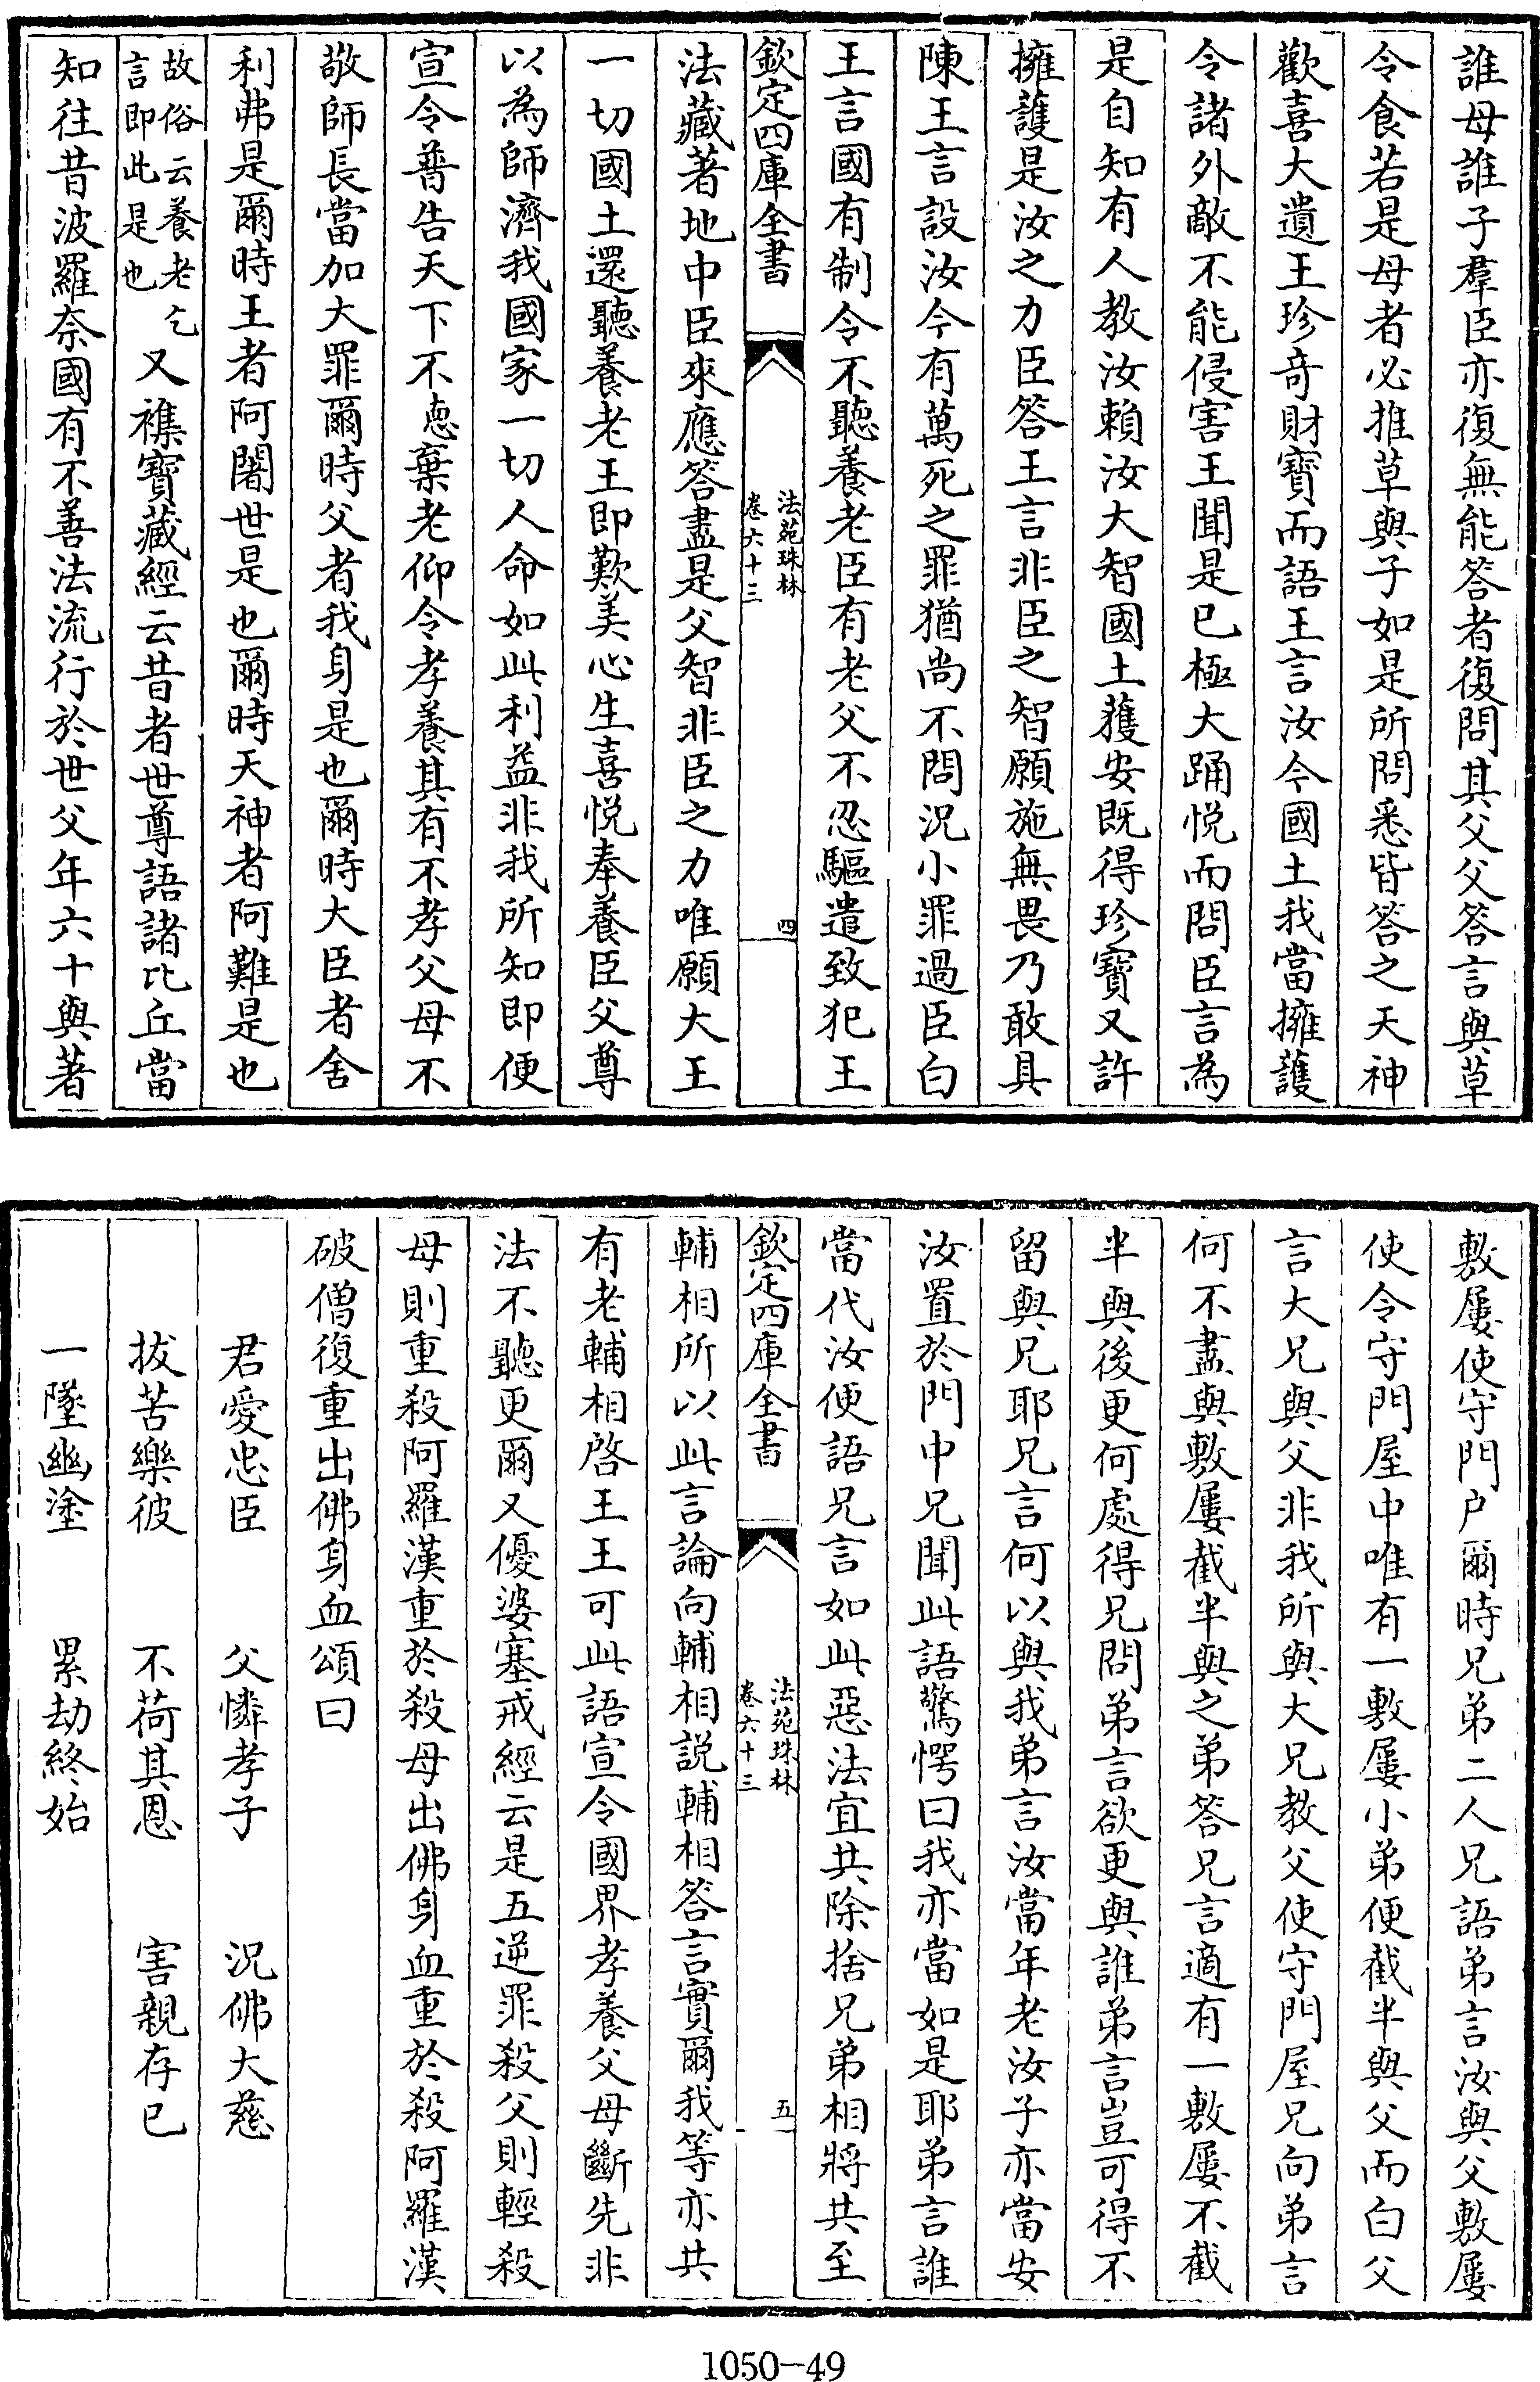 誰母誰子羣臣亦復無能答者復問其父父答言與草
令食若是母者必推草與子如是所問悉皆答之天神
歡喜大遺王珍奇財寶而語王言汝今國土我當擁護
令諸外敵不能侵害王聞是已極大踊悦而問臣言為
是自知有人教汝賴汝大智國土獲安既得珍寶又許
擁護是汝之力臣答王言非臣之智願施無畏乃敢具
陳王言設汝今有萬死之罪猶尚不問況小罪過臣白
王言國有制令不聽養老臣有老父不忍驅遣致犯王
欽定四庫全書
法苑珠林
卷六十三
四
法藏著地中臣來應答盡是父智非臣之力唯願大王
一切國土還聽養老王即歎美心生喜悦奉養臣父尊
以為師濟我國家一切人命如此利益非我所知即便
宣令普告天下不聴棄老仰令孝養其有不孝父母不
敬師長當加大罪爾時父者我身是也爾時大臣者舍
利弗是爾時王者阿闍世是也爾時天神者阿難是也
故俗云養老乞
言即此是也
又襍寶藏經云昔者世尊語諸比丘當
知往昔波羅奈國有不善法流行於世父年六十與著
敷屢使守門户爾時兄弟二人兄語弟言汝與父敷屢
使令守門屋中唯有一敷屢小弟便截半與父而白父
言大兄與父非我所與大兄教父使守門屋兄向弟言
何不盡與敷屢截半與之弟答兄言適有一敷屢不截
半與後更何處得兄問弟言欲更與誰弟言豈可得不
留與兄耶兄言何以與我弟言汝當年老汝子亦當安
汝置於門中兄聞此語驚愕曰我亦當如是耶弟言誰
當代汝便語兄言如此惡法宜共除捨兄弟相將共至
欽定四庫全書
法苑珠林
卷六十三
五
輔相所以此言論向輔相説輔相答言實爾我等亦共
有老輔相啓王王可此語宣令國界孝養父母斷先非
法不聽更爾又優婆塞戒經云是五逆罪殺父則輕殺
母則重殺阿羅漢重於殺母出佛身血重於殺阿羅漢
破僧復重出佛身血頌曰
君愛忠臣　父憐孝子　況佛大慈
拔苦樂彼　不荷其恩　害親存已
一墜幽塗　累劫終始
1050-49